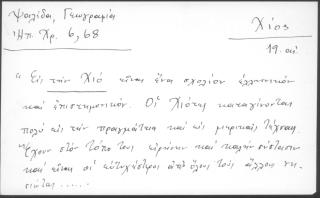 Ψαλίδα, Γεωγραφία
Ἠπ. Χρ. 6, 68
Χίος
19. αἰ
"Εἰς τὴν Χιὸ εἶναι ἕνα σχολεῖον ἑλληνικὸν
καὶ ἐπιστημονικόν. Οἱ Χιότες καταγίνονται
πολὺ εἰς τὴν πραγμάτεια καὶ εἰς μερικὲς τέχνας.
Ἔχουν στὸν τόπο τους εἰρήνην καὶ καλὴν σύστασιν
καὶ εἶναι οἱ εὐτυχέστεροι ἀπὸ ὅλους τοὺς ἄλλους νη-
σιώτας .....